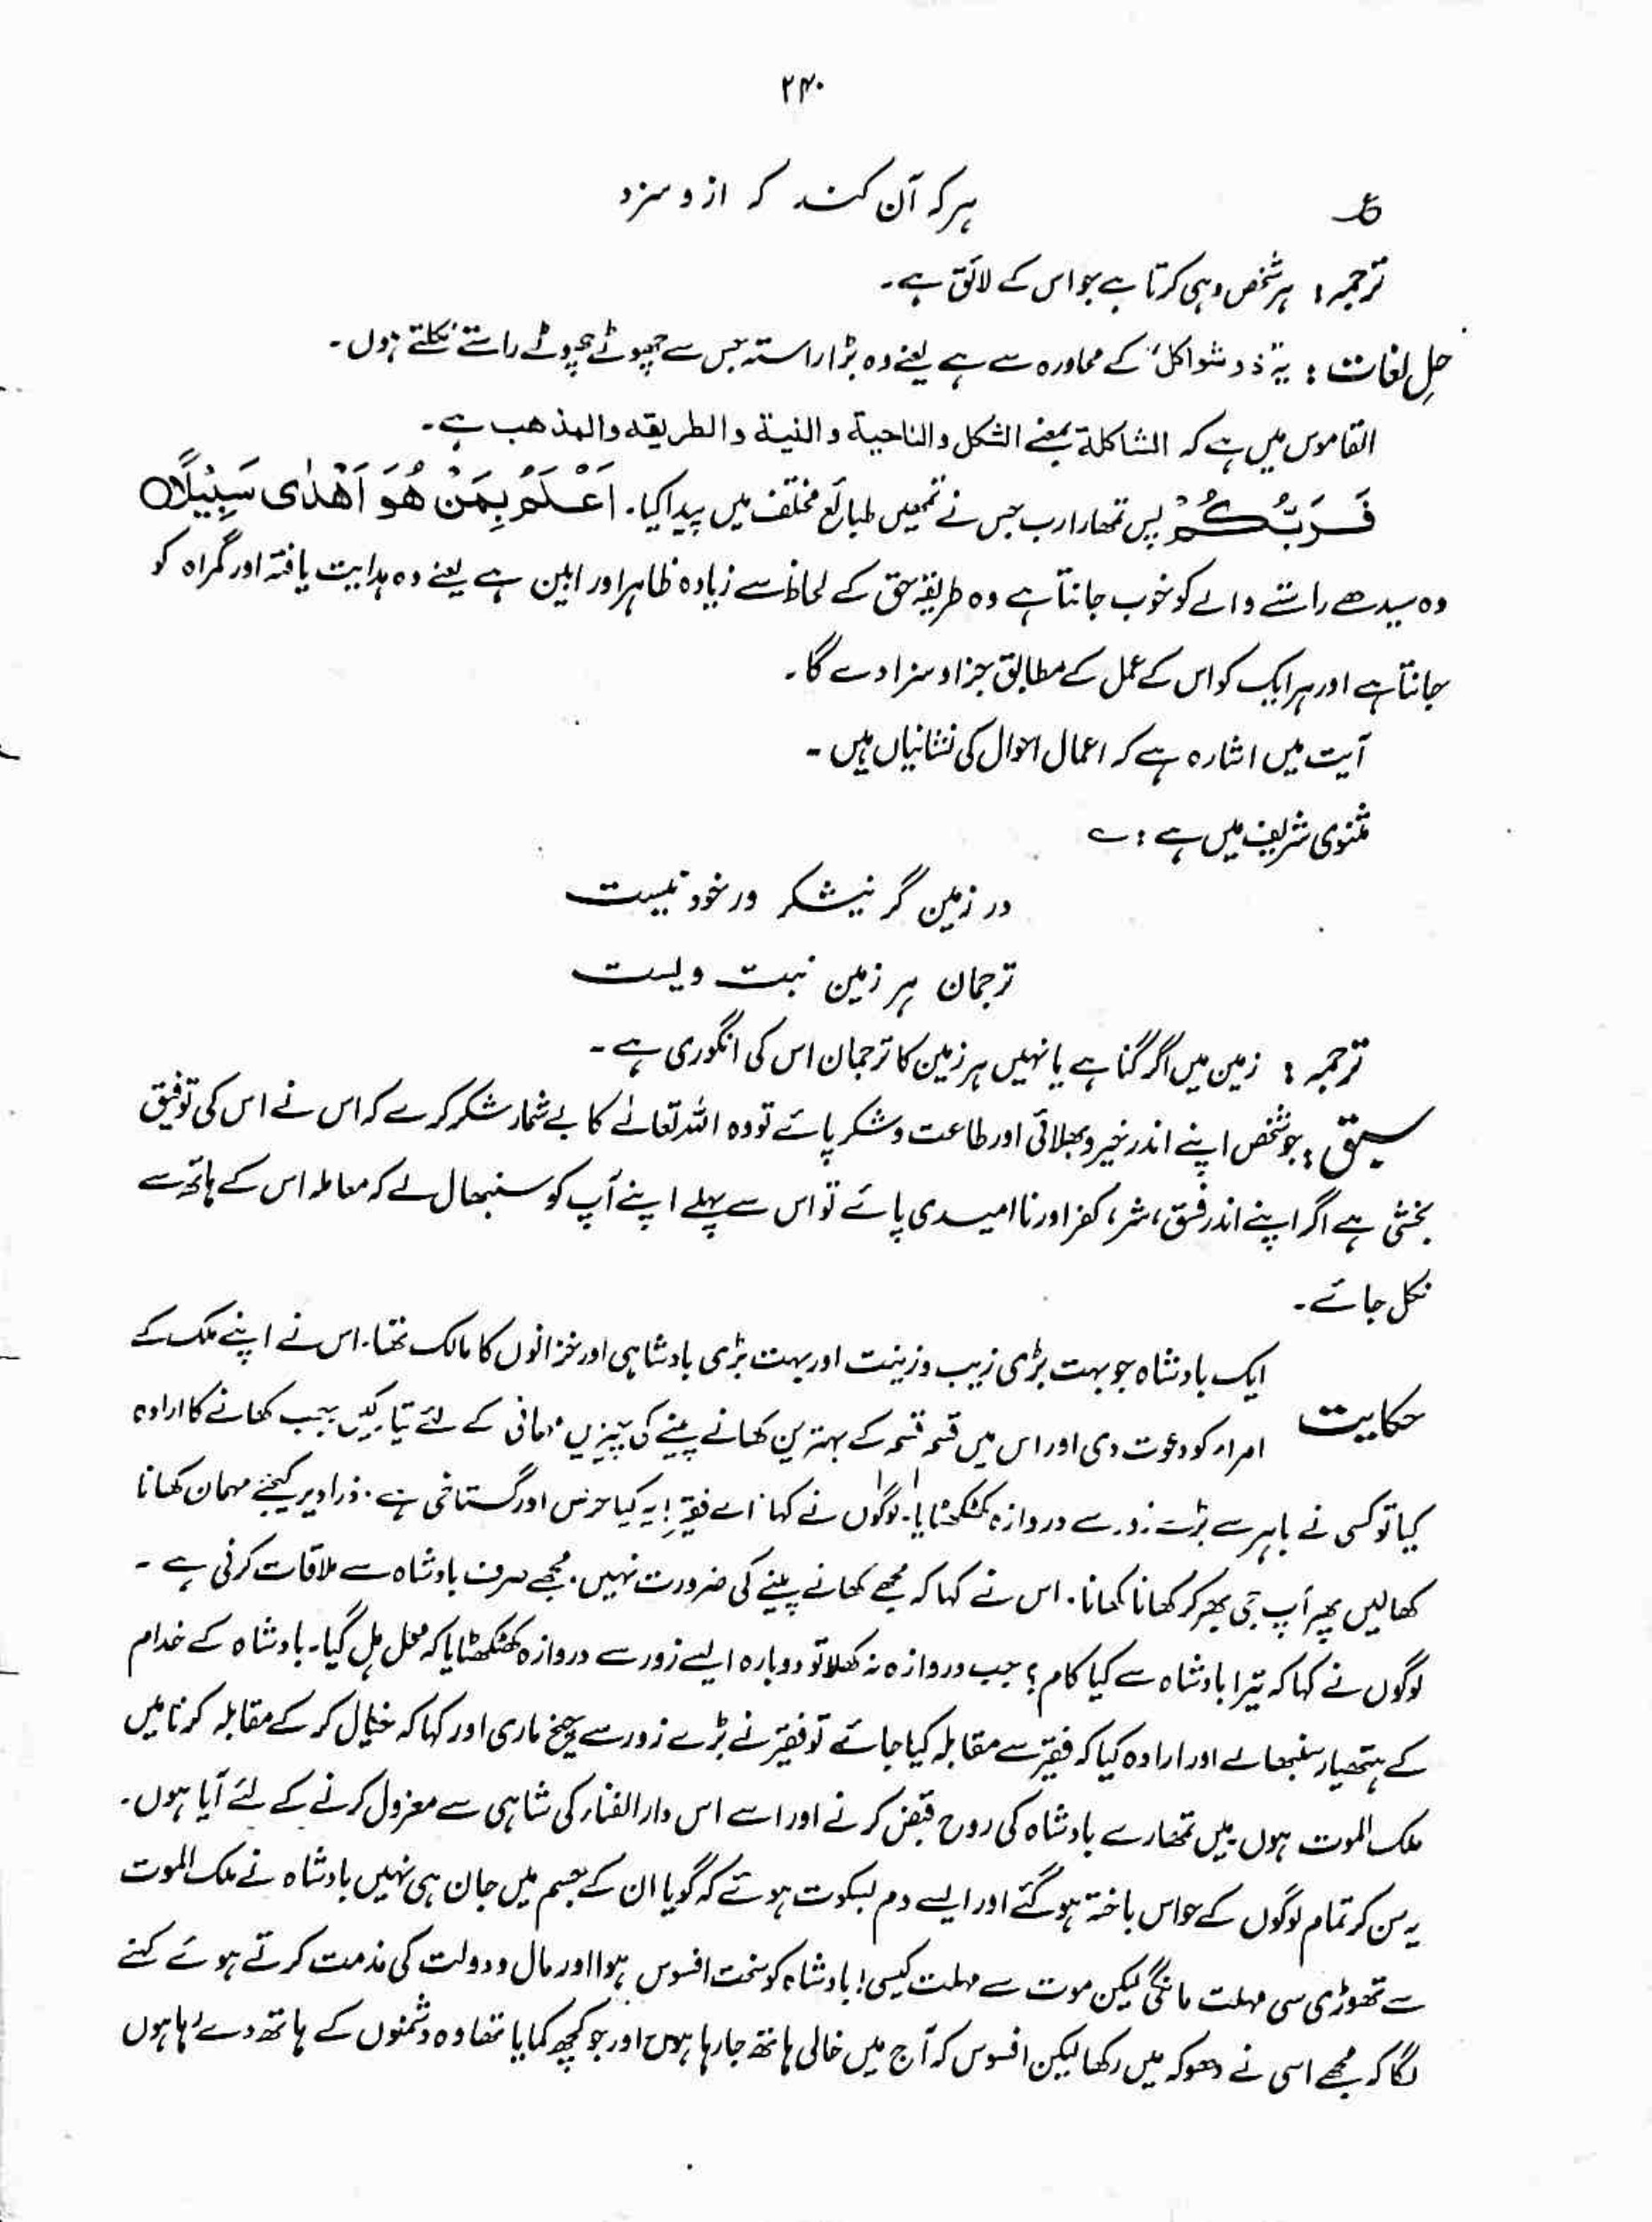 ۲۴۰
ع ہر کہ آن کند کہ ازو سزد
ترجمہ : ہر شخص وہی کرتا ہے جو اس کے لائق ہے۔
حلِ لغات : یہ ذوشواکل کے محاورہ سے ہے یعنے وہ بڑا راستہ جس سے چھوٹے چھوٹے راستے نکلتے ہوں۔
القاموس میں ہے کہ الشاکلۃ بمعنے الشکل والناحیۃ والنیۃ والطریقہ والمذھب ہے۔
فَرَبُّكُمْ پس تمھارا رب جس نے تمھیں طبائع مختلف میں پیدا کیا۔ اَعْلَمُ بِمَنْ هُوَ اَهْدٰى سَبِيْلًا۝
وہ سیدھے راستے والے کو خوب جانتا ہے وہ طریقۂ حق کے لحاظ سے زیادہ ظاہر اور ابین ہے یعنے وہ ہدایت یافتہ اور گمراہ کو
جانتا ہے اور ہر ایک کو اس کے عمل کے مطابق جزا و سزا دے گا۔
آیت میں اشارہ ہے کہ اعمال احوال کی نشانیاں ہیں۔
مثنوی شریف میں ہے : ؎
در زمین گر نیشکر ور خود نیست
ترجمان ہر زمین نبت ویست
ترجمہ : زمین میں اگر گنا ہے یا نہیں ہر زمین کا ترجمان اس کی انگوری ہے۔
سبق : جو شخص اپنے اندر خیر و بھلائی اور طاعت و شکر پائے تو وہ اللہ تعالٰے کا بے شمار شکر کرے کہ اس نے اس کی توفیق
بخشی ہے اگر اپنے اندر فسق، شر، کفر اور ناامیدی پائے تو اس سے پہلے اپنے آپ کو سنبھال لے کہ معاملہ اس کے ہاتھ سے
نکل جائے۔
حکایت ایک بادشاہ جو بہت بڑی زیب و زینت اور بہت بڑی بادشاہی اور خزانوں کا مالک تھا۔ اس نے اپنے ملک کے
امراء کو دعوت دی اور اس میں قسم قسم کے بہترین کھانے پینے کی چیزیں مہمانی کے لئے تیار کیں جب کھانے کا ارادہ
کیا تو کسی نے باہر سے بڑے زور سے دروازہ کھٹکھٹایا۔ لوگوں نے کہا اے فقیر! یہ کیا حرص اور گستاخی ہے۔ ذرا دیر کیجئے مہمان کھانا
کھالیں پھر آپ جی بھر کر کھانا کھانا۔ اس نے کہا کہ مجھے کھانے پینے کی ضرورت نہیں۔ مجھے صرف بادشاہ سے ملاقات کرنی ہے۔
لوگوں نے کہا کہ تیرا بادشاہ سے کیا کام؟ جب دروازہ نہ کھلا تو دوبارہ ایسے زور سے دروازہ کھٹکھٹایا کہ محل ہل گیا۔ بادشاہ کے خدام
کے ہتھیار سنبھالے اور ارادہ کیا کہ فقیر سے مقابلہ کیا جائے تو فقیر نے بڑے زور سے چیخ ماری اور کہا کہ خیال کر کے مقابلہ کرنا میں
ملک الموت ہوں۔ میں تمھارے بادشاہ کی روح قبض کرنے اور اسے اس دارالفناء کی شاہی سے معزول کرنے کے لئے آیا ہوں۔
یہ سن کر تمام لوگوں کے حواس باختہ ہوگئے اور ایسے دم بسکوت ہوئے کہ گویا ان کے جسم میں جان ہی نہیں بادشاہ نے ملک الموت
سے تھوڑی سی مہلت مانگی لیکن موت سے مہلت کیسی! بادشاہ کو سخت افسوس ہوا اور مال و دولت کی مذمت کرتے ہوئے کہنے
لگا کہ مجھے اسی نے دھوکہ میں رکھا لیکن افسوس کہ آج میں خالی ہاتھ جا رہا ہوں اور جو کچھ کمایا تھا وہ دشمنوں کے ہاتھ دے رہا ہوں